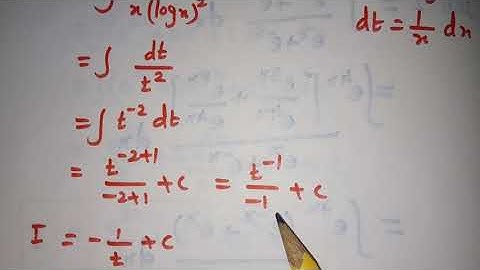 ∫ / x(logx)²
dt = 1/x dx
= ∫ dt/t²
= ∫ t⁻² dt
= t⁻²⁺¹/-2+1 + c = t⁻¹/-1 + c
I = - 1/t + c